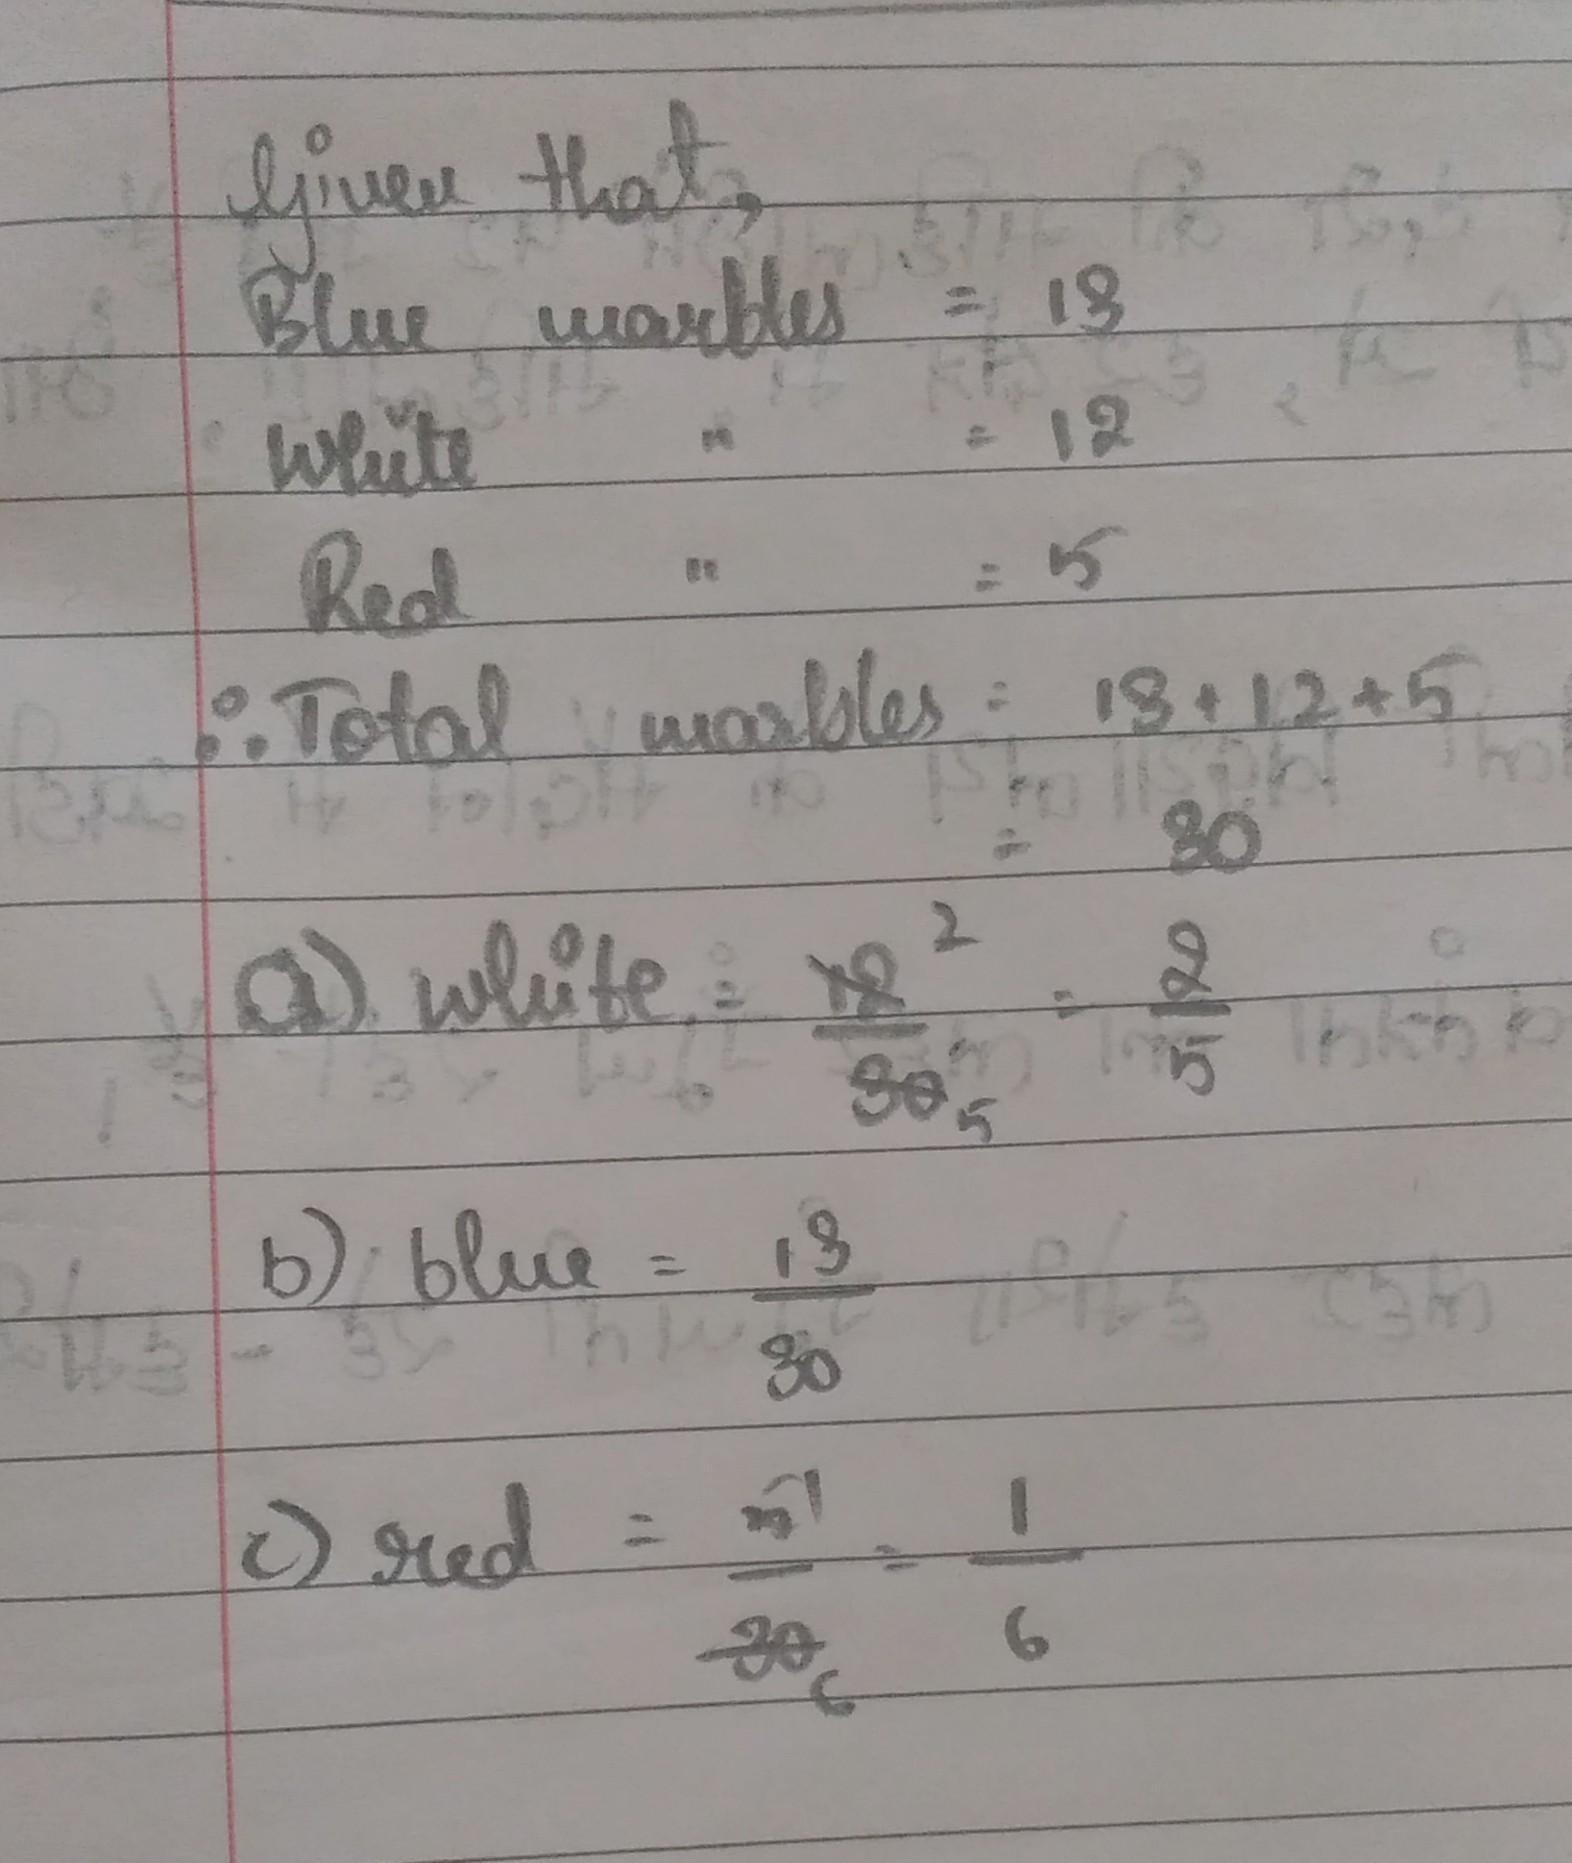 Given that,
Blue marbles = 13
White " = 12
Red " = 5
∴ Total marbles = 13 + 12 + 5
= 30
a) white = 12/30 2 5 = 2/5
b) blue = 13/30
c) red = 5/30 1 6 = 1/6